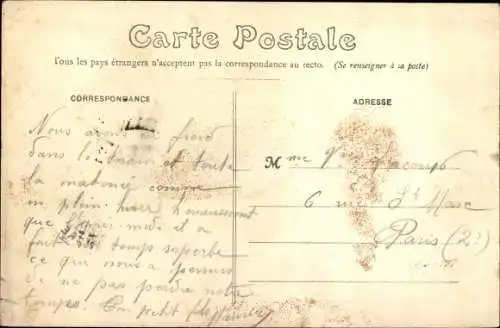 Carte Postale
Tous les pays étrangers n'acceptent pas la correspondance au recto. (Se renseigner à la poste)
CORRESPONDANCE
Nous avons eu froid
dans le train et toute
la matinée comme
en plein hiver heureusement
que midi il a
fait temps superbe
ce qui nous a permis
de ne pas perdre notre
temps. Un petit
ADRESSE
Mme Vve
6 rue St Marc
Paris (2e)